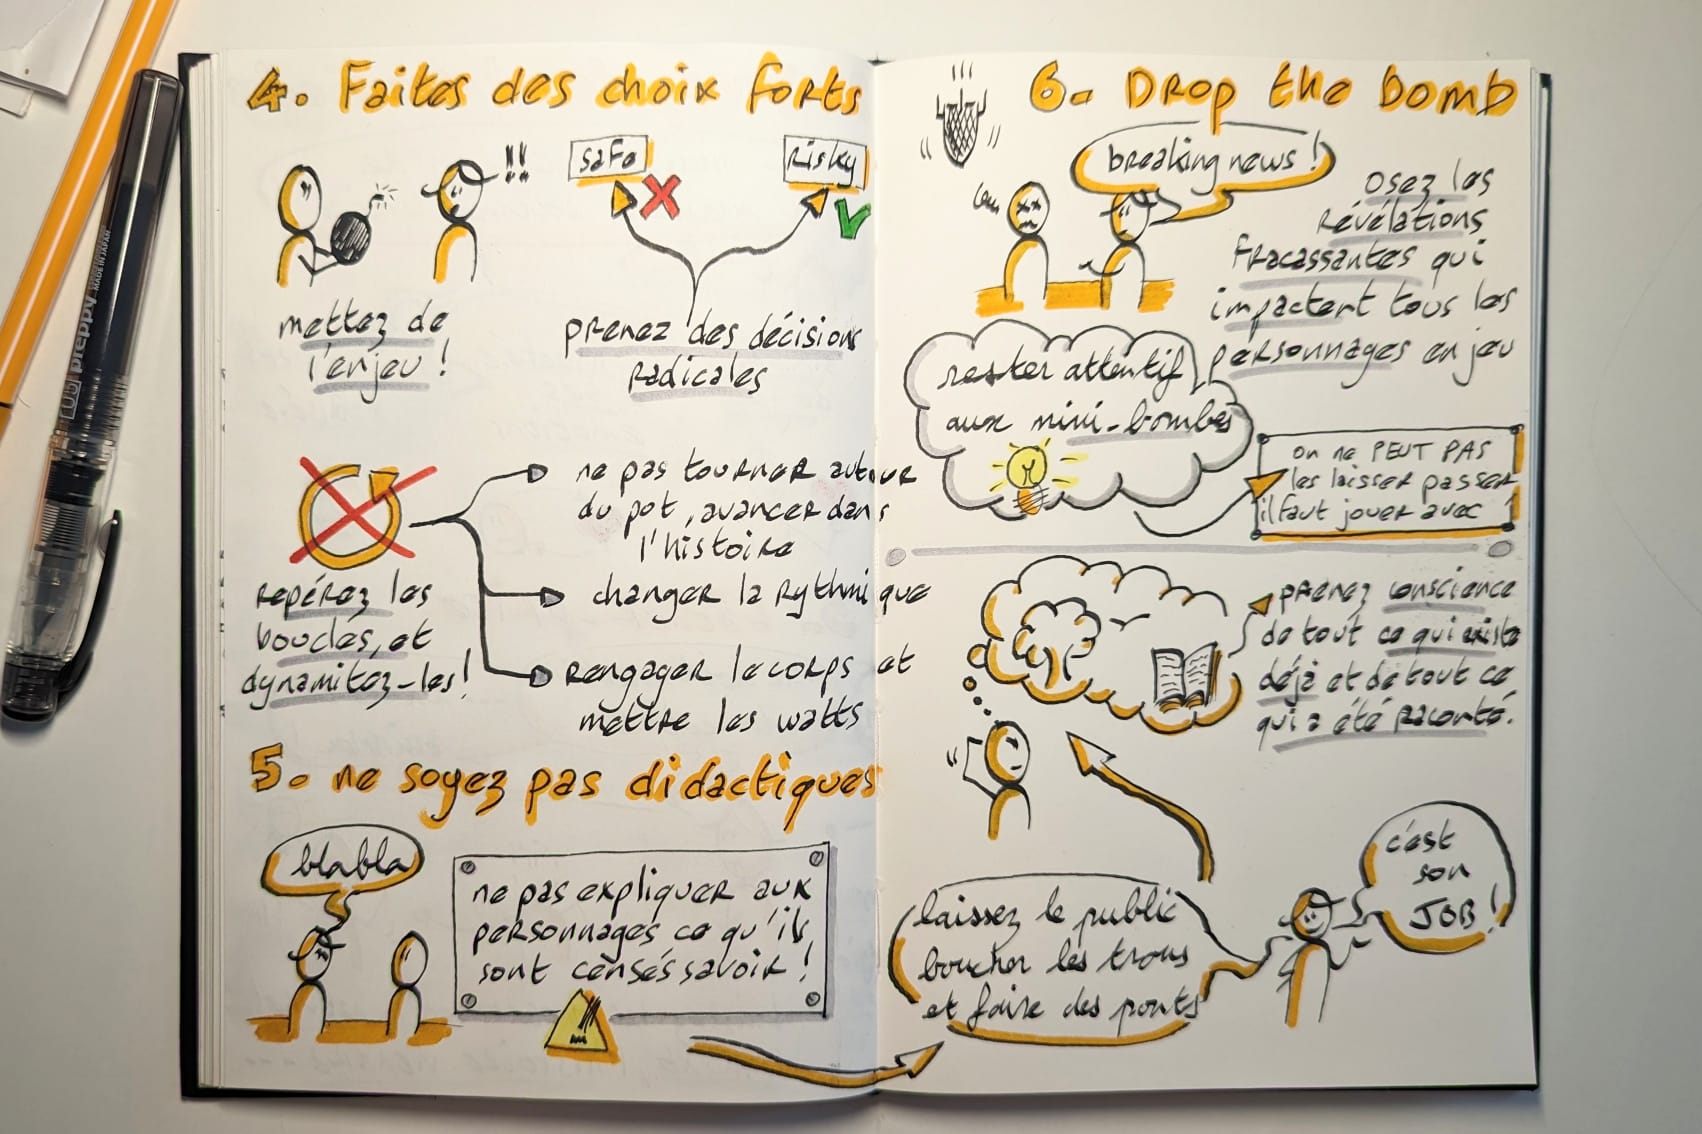 4. Faites des choix forts
!!
safe
risky
mettez de
l'enjeu !
prenez des décisions
radicales
repérez les
boucles, et
dynamitez-les !
ne pas tourner autour
du pot, avancer dans
l'histoire
changer la rythmique
rengager le corps et
mettre les watts
5. ne soyez pas didactiques
blabla
ne pas expliquer aux
personnages ce qu'ils
sont censés savoir !
6. Drop the bomb
breaking news !
osez les
révélations
fracassantes qui
impactent tous les
personnages en jeu
rester attentif
aux mini-bombes
on ne PEUT PAS
les laisser passer
il faut jouer avec
prenez conscience
de tout ce qui existe
déjà et de tout ce
qui a été raconté.
laissez le public
boucher les trous
et faire des ponts
c'est
son
JOB !
preppy
MADE IN JAPAN